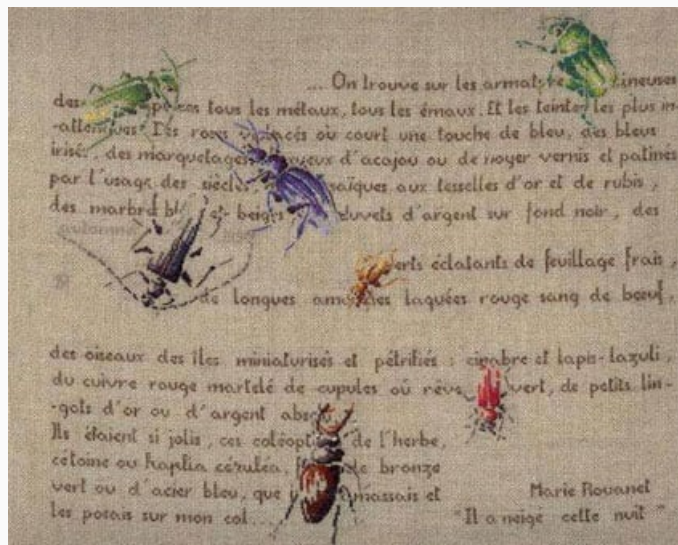 ... On trouve sur les
des tous les métaux, tous les émaux. Et les teintes les plus in-
-attendues. Des roses où court une touche de bleu, des bleus
irisés, des marquetages d'acajou ou de noyer vernis et patinés
par l'usage des siècles, aux tesselles d'or et de rubis,
des et beiges duvets d'argent sur fond noir, des
automne
verts éclatants de feuillage frais,
de longues laquées rouge sang de bœuf,
des oiseaux des îles miniaturisés et pétrifiés : cinabre et lapis-lazuli,
du cuivre rouge martelé de cupules où vert, de petits lin-
-gots d'or ou d'argent
Ils étaient si jolis, ces de l'herbe,
cétoine ou hoplia cérulea, de bronze
vert ou d'acier bleu, que amassais et
les posais sur mon col...
Marie Rouanet
"Il a neigé cette nuit"